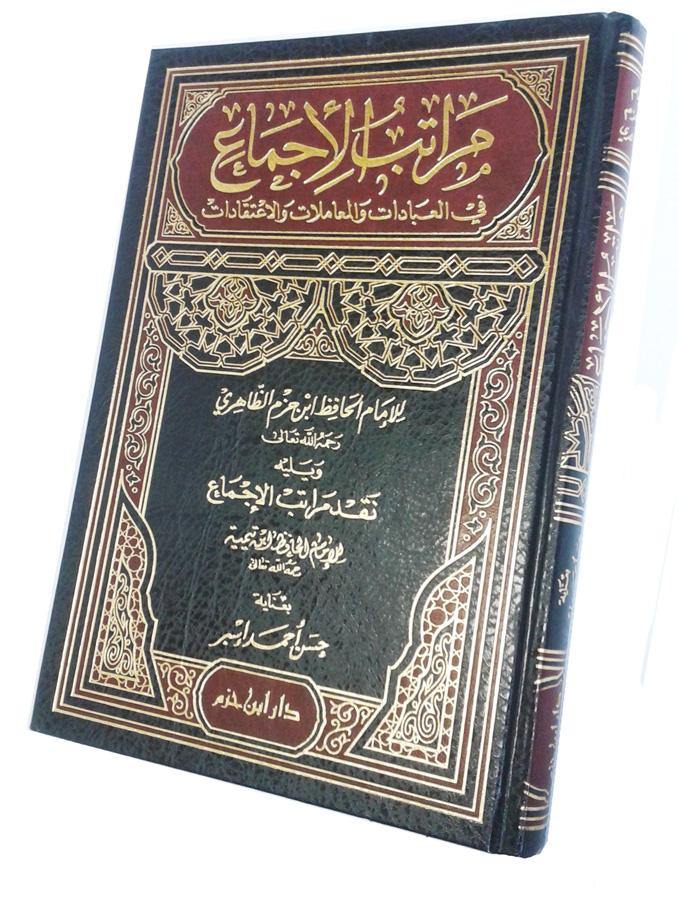 مَرَاتِبُ الْإِجْمَاعِ
في العبادات والمعاملات والاعتقادات
للإمام الحافظ ابن حزم الظاهري
رحمه الله تعالى
ويليه
نقد مراتب الإجماع
للإمام الحافظ ابن تيمية
رحمه الله تعالى
بعناية
حسن أحمد إسبر
دار ابن حزم
مراتب الإجماع
بعناية